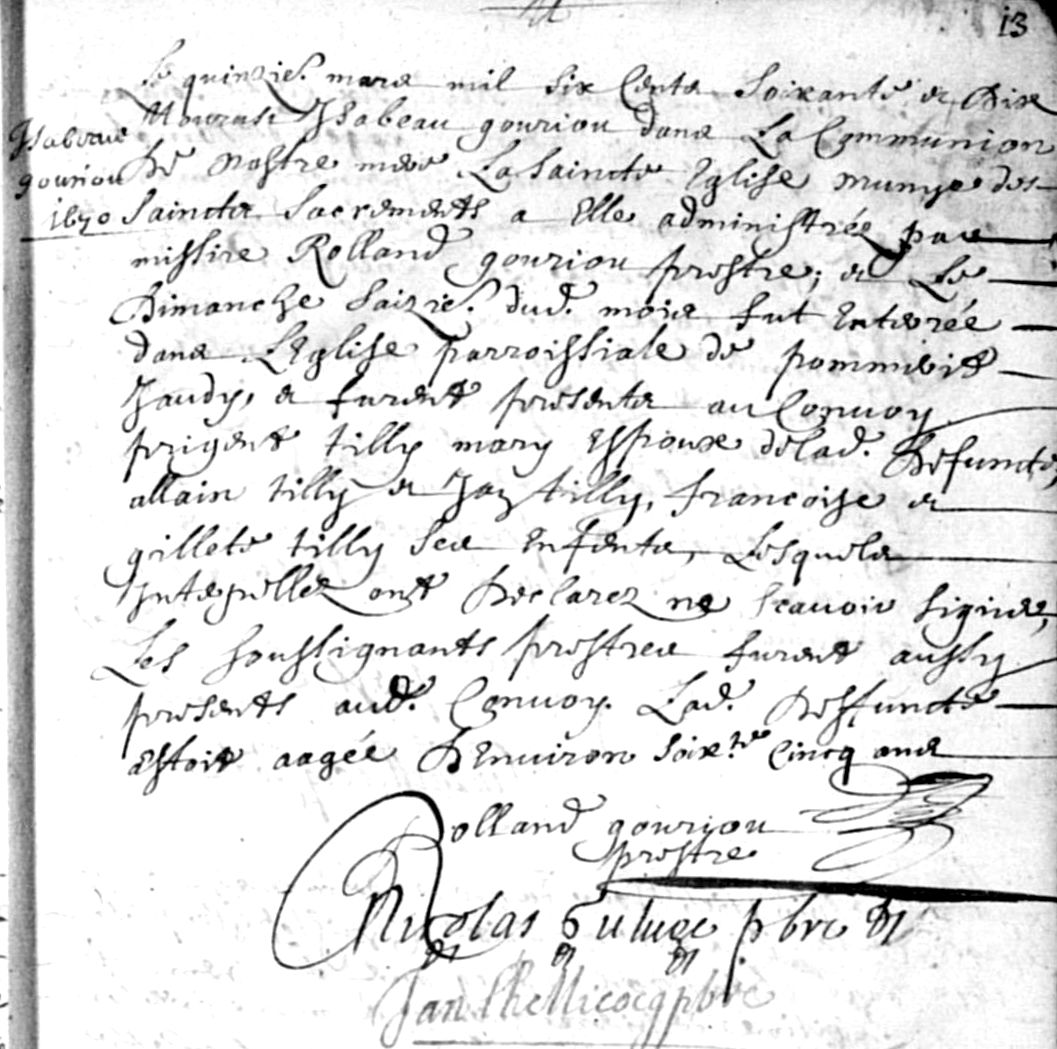 13
Le quinzie. mars mil six Cents soixante et Dix
Mourust Isabeau gouriou dans La Communion
De nostre mere La saincte Eglise munye des
Isabeau
gouriou
1670
Saincts Sacrements a Elle administrée par
missire Rolland gouriou prestre; et Le
Dimanche saizie. dud. mois fut Enterrée
dans L'Eglise parroissiale de pommerit
Jaudy, et furent presents au Convoy
prigent tilly mary Espoux delad. Defuncte,
allain tilly et Jan tilly, francoise et
gillete tilly ses Enfents, Lesquels
Interpellez ont Declarez ne scavoir signer,
Les soussignants prestres furent aussy
presents aud. Convoy. Lad. Deffuncte
Estoit aagée D'Environ soix.te Cincq ans
Rolland gouriou
prestre
Nicolas pbre
Jan pbre